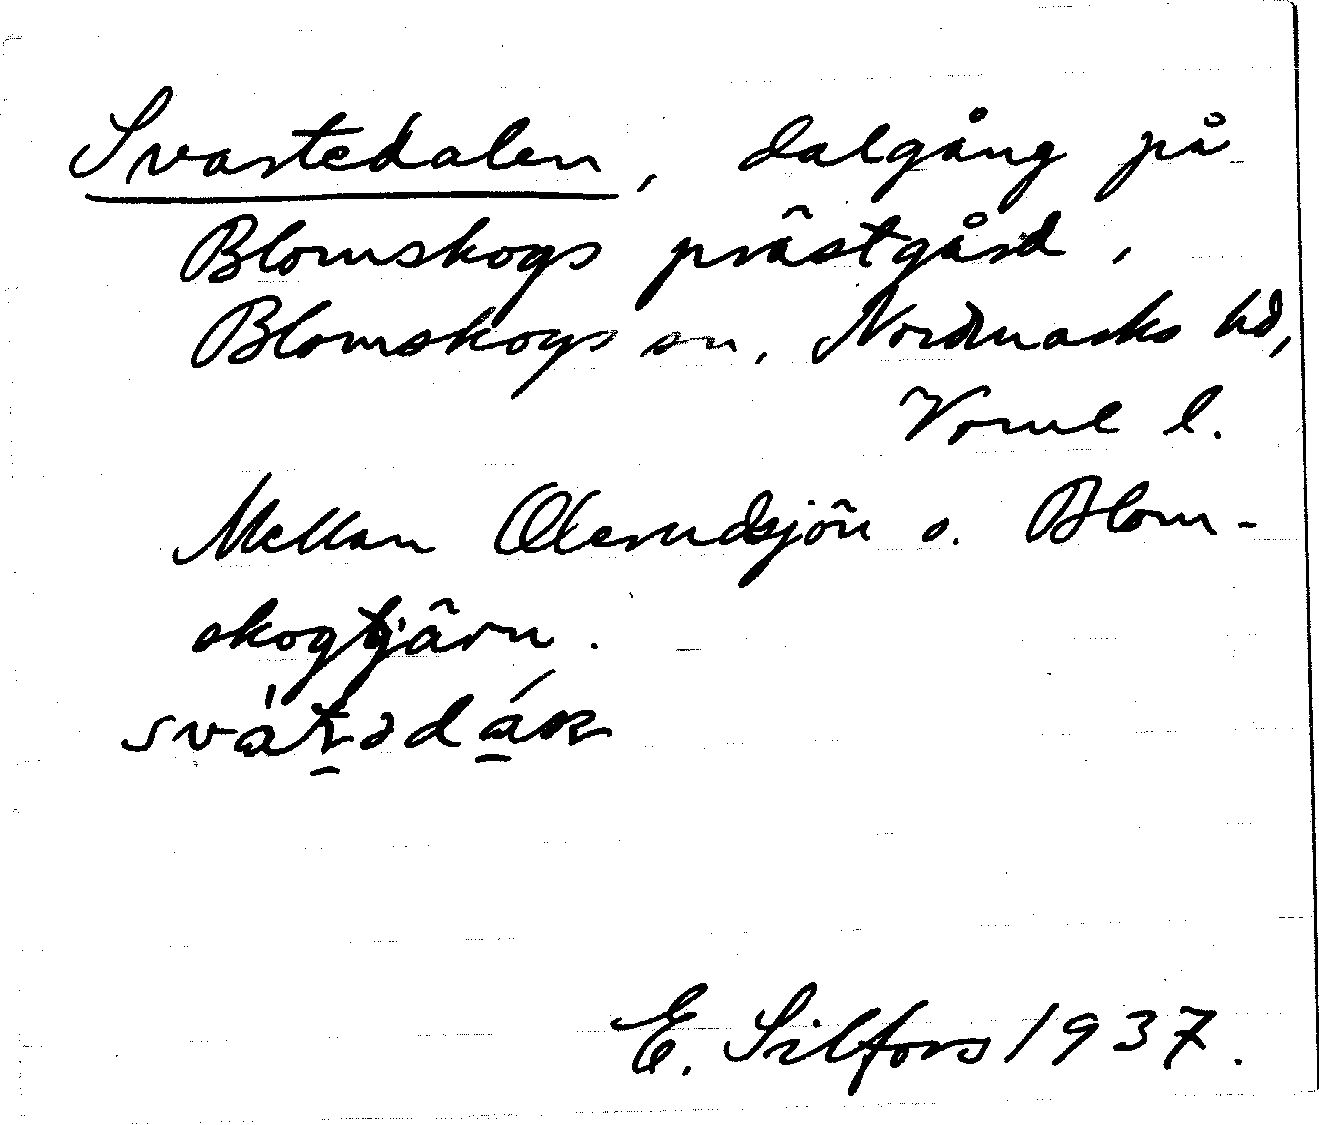 Svartedalen, dalgång på
Blomskogs prästgård,
Blomskogs sn, Nordmarks hd,
Verml l.
Mellan Olerudsjön o. Blom-
skogtjärn.
E. Silfors 1937.